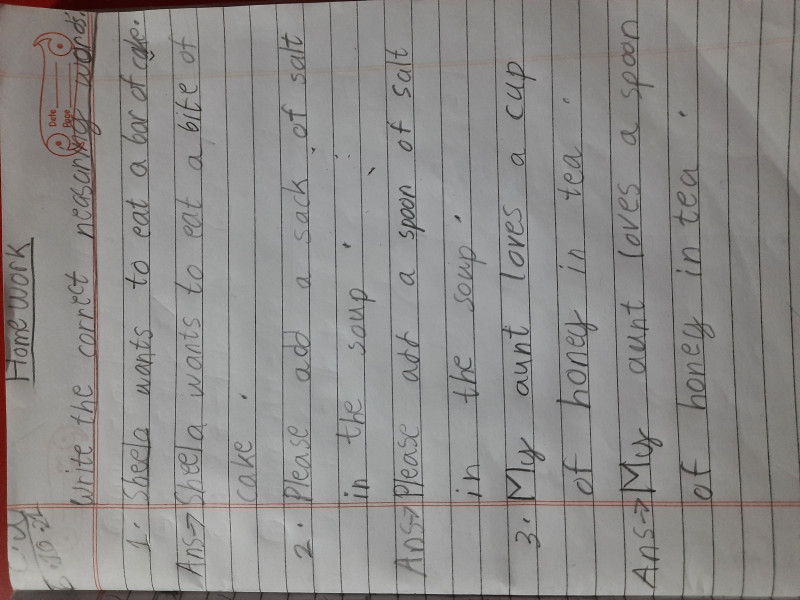 Home work
Date
Page
Write the correct measuring words.
1. Sheela wants to eat a bar of cake.
Ans→ Sheela wants to eat a bite of
cake.
2. Please add a sack of salt
in the soup.
Ans→ Please add a spoon of salt
in the soup.
3. My aunt loves a cup
of honey in tea.
Ans→ My aunt loves a spoon
of honey in tea.